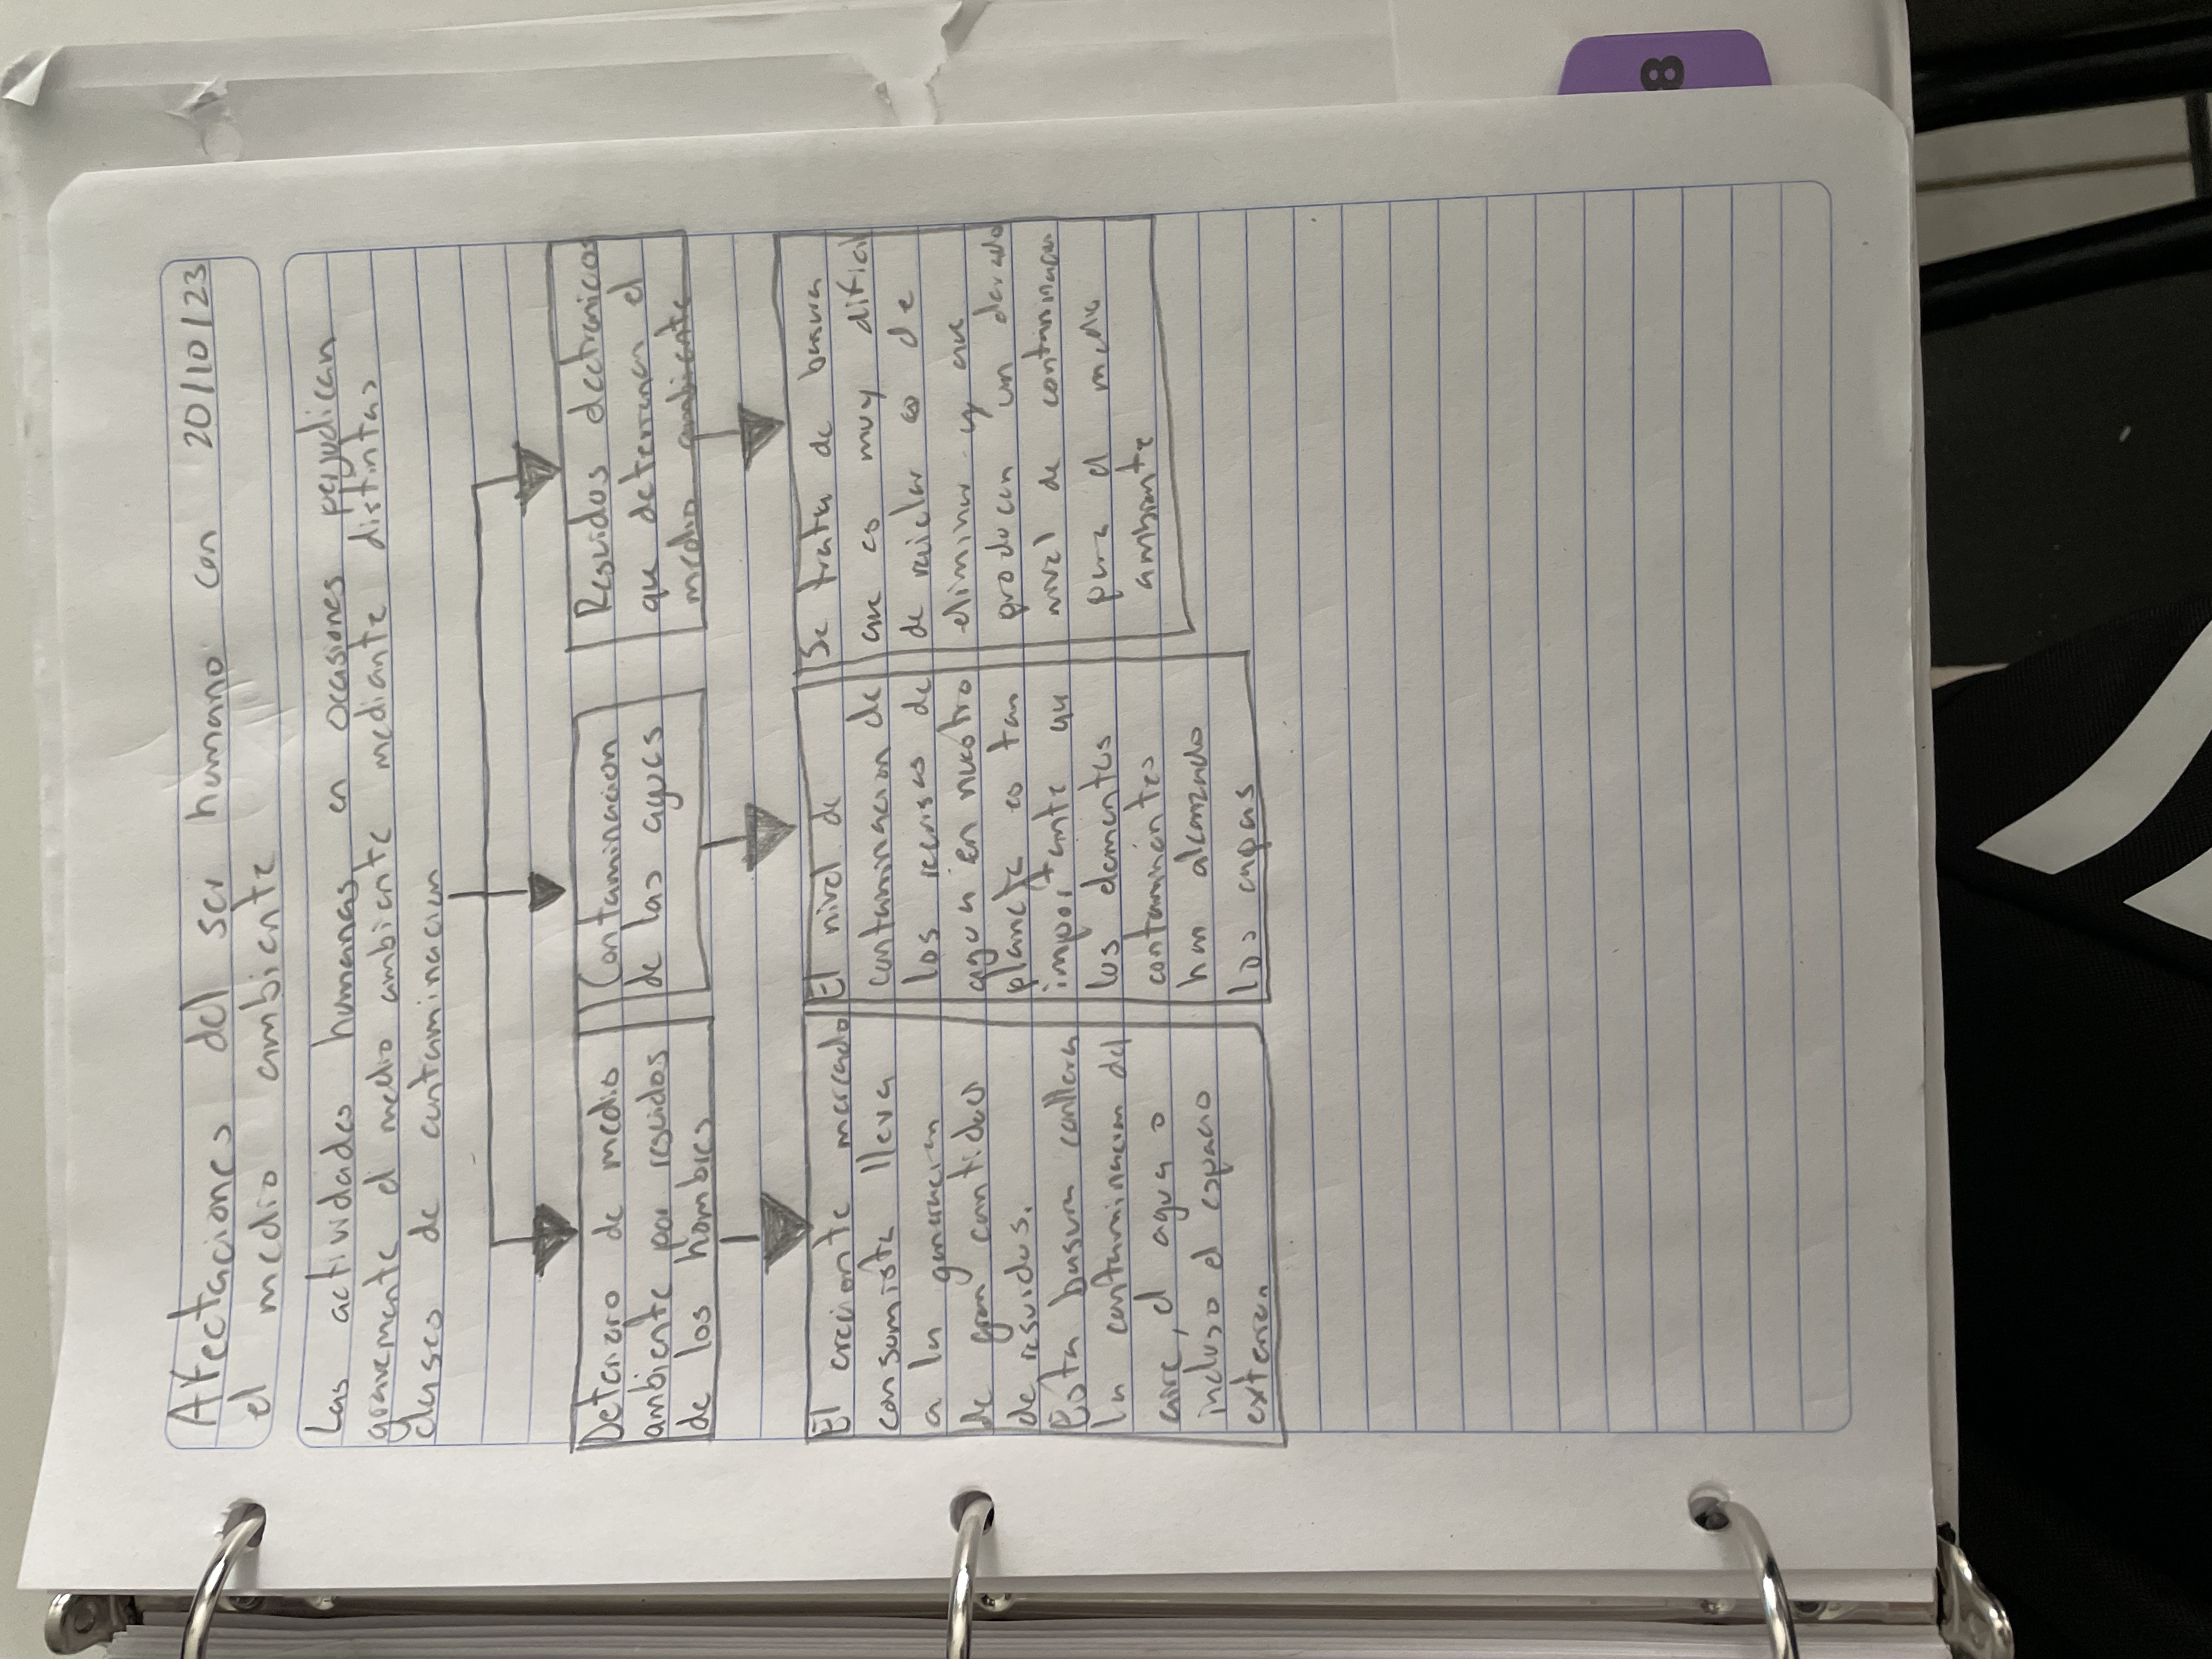 Afectaciones del ser humano con 20/10/23
el medio ambiente
Las actividades humanas en ocasiones perjudican
gravemente el medio ambiente mediante distintas
clases de contaminacion
Deterioro de medio
ambiente por residos
de los hombres
Contaminacion
de las aguas
Residuos electronicos
que deterioran el
medio ambiente
El creciente mercado
consumista lleva
a la generacion
de gran cantidad
de residuos.
Esta basura conlleva
la contaminacion del
aire, el agua o
incluso el espacio
exterior.
El nivel de
contaminacion de
los recursos de
agua en nuestro
planeta es tan
importante qu
los elementos
contaminantes
han alcanzado
las capas
Se trata de basura
que es muy dificil
de reciclar o de
eliminar y que
producen un elevado
nivel de contaminacion
para el medio
ambiente
8